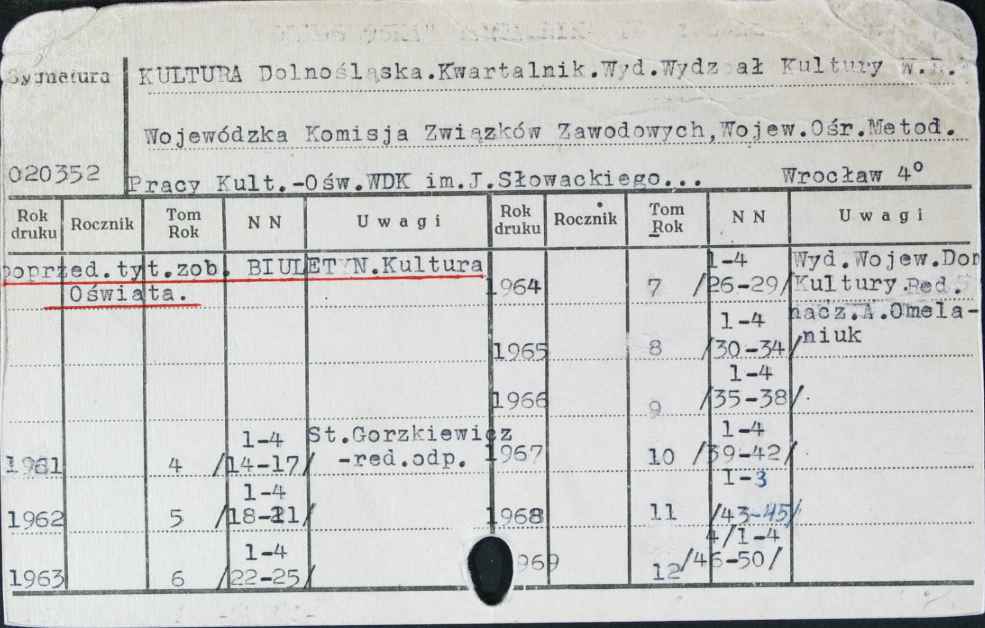 Sygnatura KULTURA Dolnośląska.Kwartalnik.Wyd.Wydział Kultury W.R.
Wojewódzka Komisja Związków Zawodowych,Wojew.Ośr.Metod.
020352 Pracy Kult.-Ośw.WDK im.J.Słowackiego... Wrocław 4°
Rok druku Rocznik Tom Rok N N Uwagi Rok druku Rocznik Tom Rok N N Uwagi
poprzed.tyt.zob. BIULETYN.Kultura
Oświata.
1964 7 1-4 /26-29/ Wyd.Wojew.Dom
Kultury.Red.
nacz.A.Omela-
niuk
1965 8 1-4 /30-34/
1966 9 1-4 /35-38/
1961 4 1-4 /14-17/ St.Gorzkiewicz
-red.odp.
1967 10 1-4 /39-42/
1962 5 1-4 /18-21/
1968 11 1-3 /43-45/
1963 6 1-4 /22-25/
1969 12 4/1-4 /46-50/